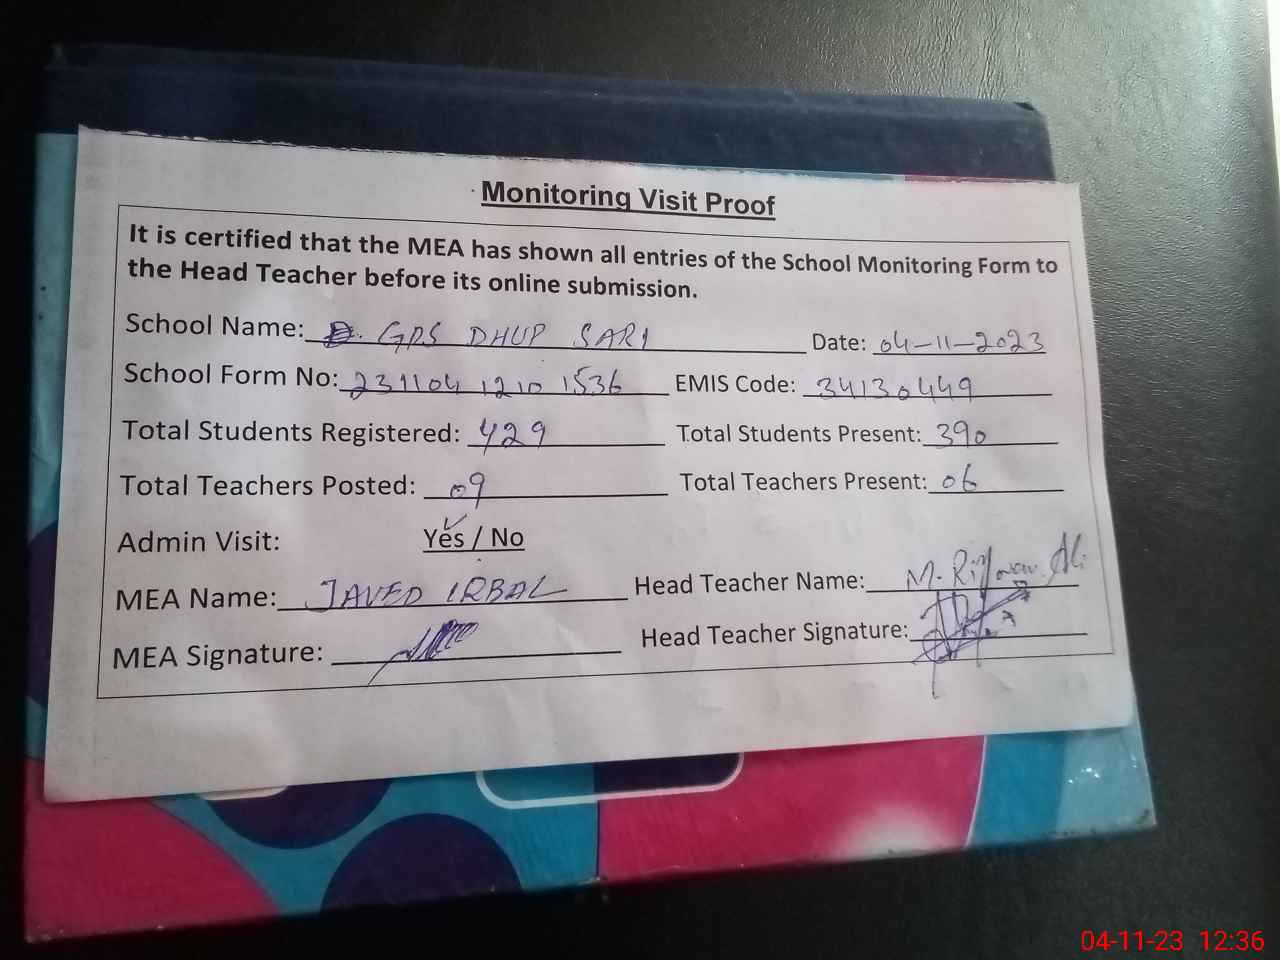 Monitoring Visit Proof
It is certified that the MEA has shown all entries of the School Monitoring Form to
the Head Teacher before its online submission.
School Name: GPS DHUP SARI Date: 04-11-2023
School Form No: 231104 1210 1536 EMIS Code: 34130449
Total Students Registered: 429 Total Students Present: 390
Total Teachers Posted: 09 Total Teachers Present: 06
Admin Visit: Yes / No
MEA Name: JAVED IRBAL Head Teacher Name: M. Rizwan Ali
MEA Signature: Head Teacher Signature:
04-11-23 12:36